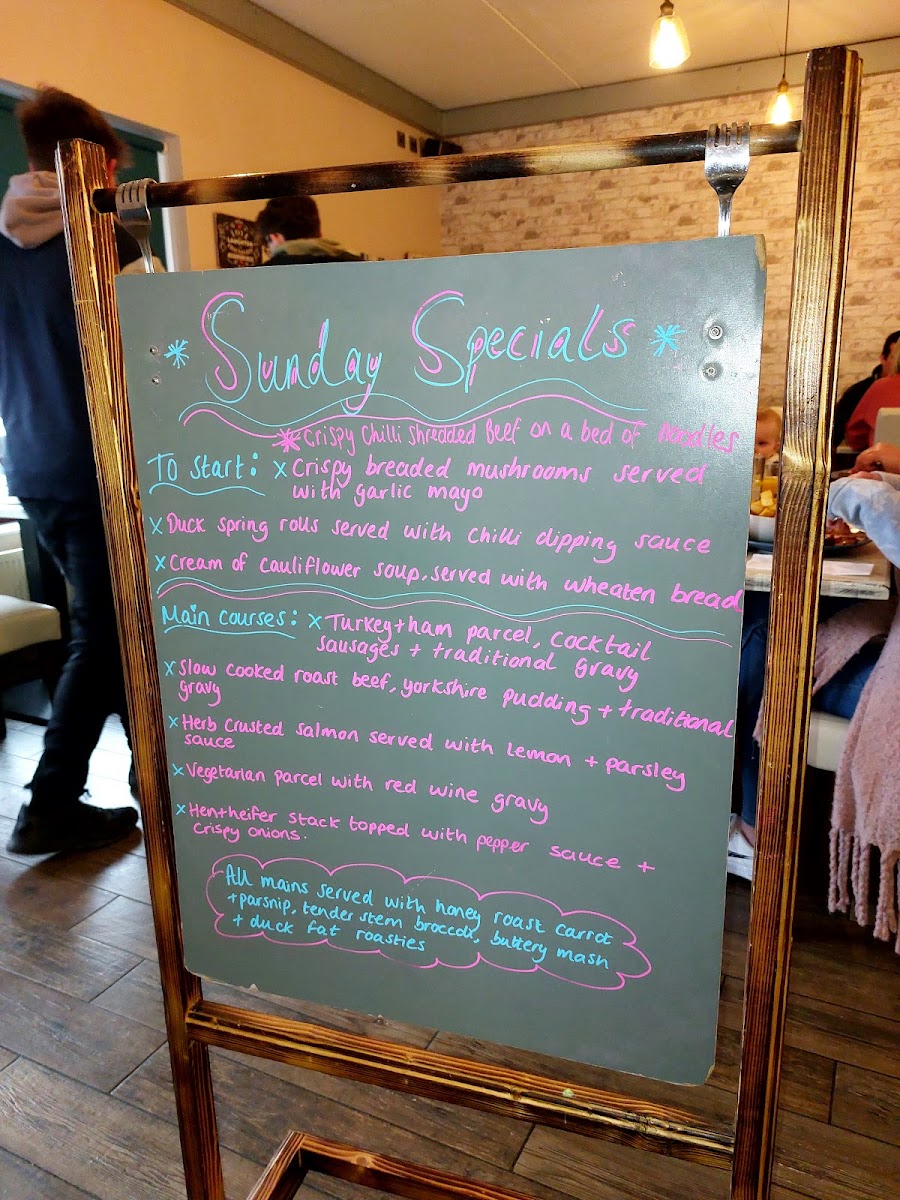 * Sunday Specials *
* Crispy Chilli Shredded Beef on a bed of Noodles
To Start: x Crispy breaded mushrooms served
with garlic mayo
x Duck spring rolls served with chilli dipping sauce
x Cream of cauliflower soup, served with wheaten bread
Main courses: x Turkey + ham parcel, cocktail
sausages + traditional gravy
x Slow cooked roast beef, yorkshire pudding + traditional
gravy
x Herb Crusted salmon served with Lemon + parsley
sauce
x Vegetarian parcel with red wine gravy
x Hen + heifer stack topped with pepper sauce +
crispy onions.
All mains served with honey roast carrot
+ parsnip, tender stem broccoli, buttery mash
+ duck fat roasties